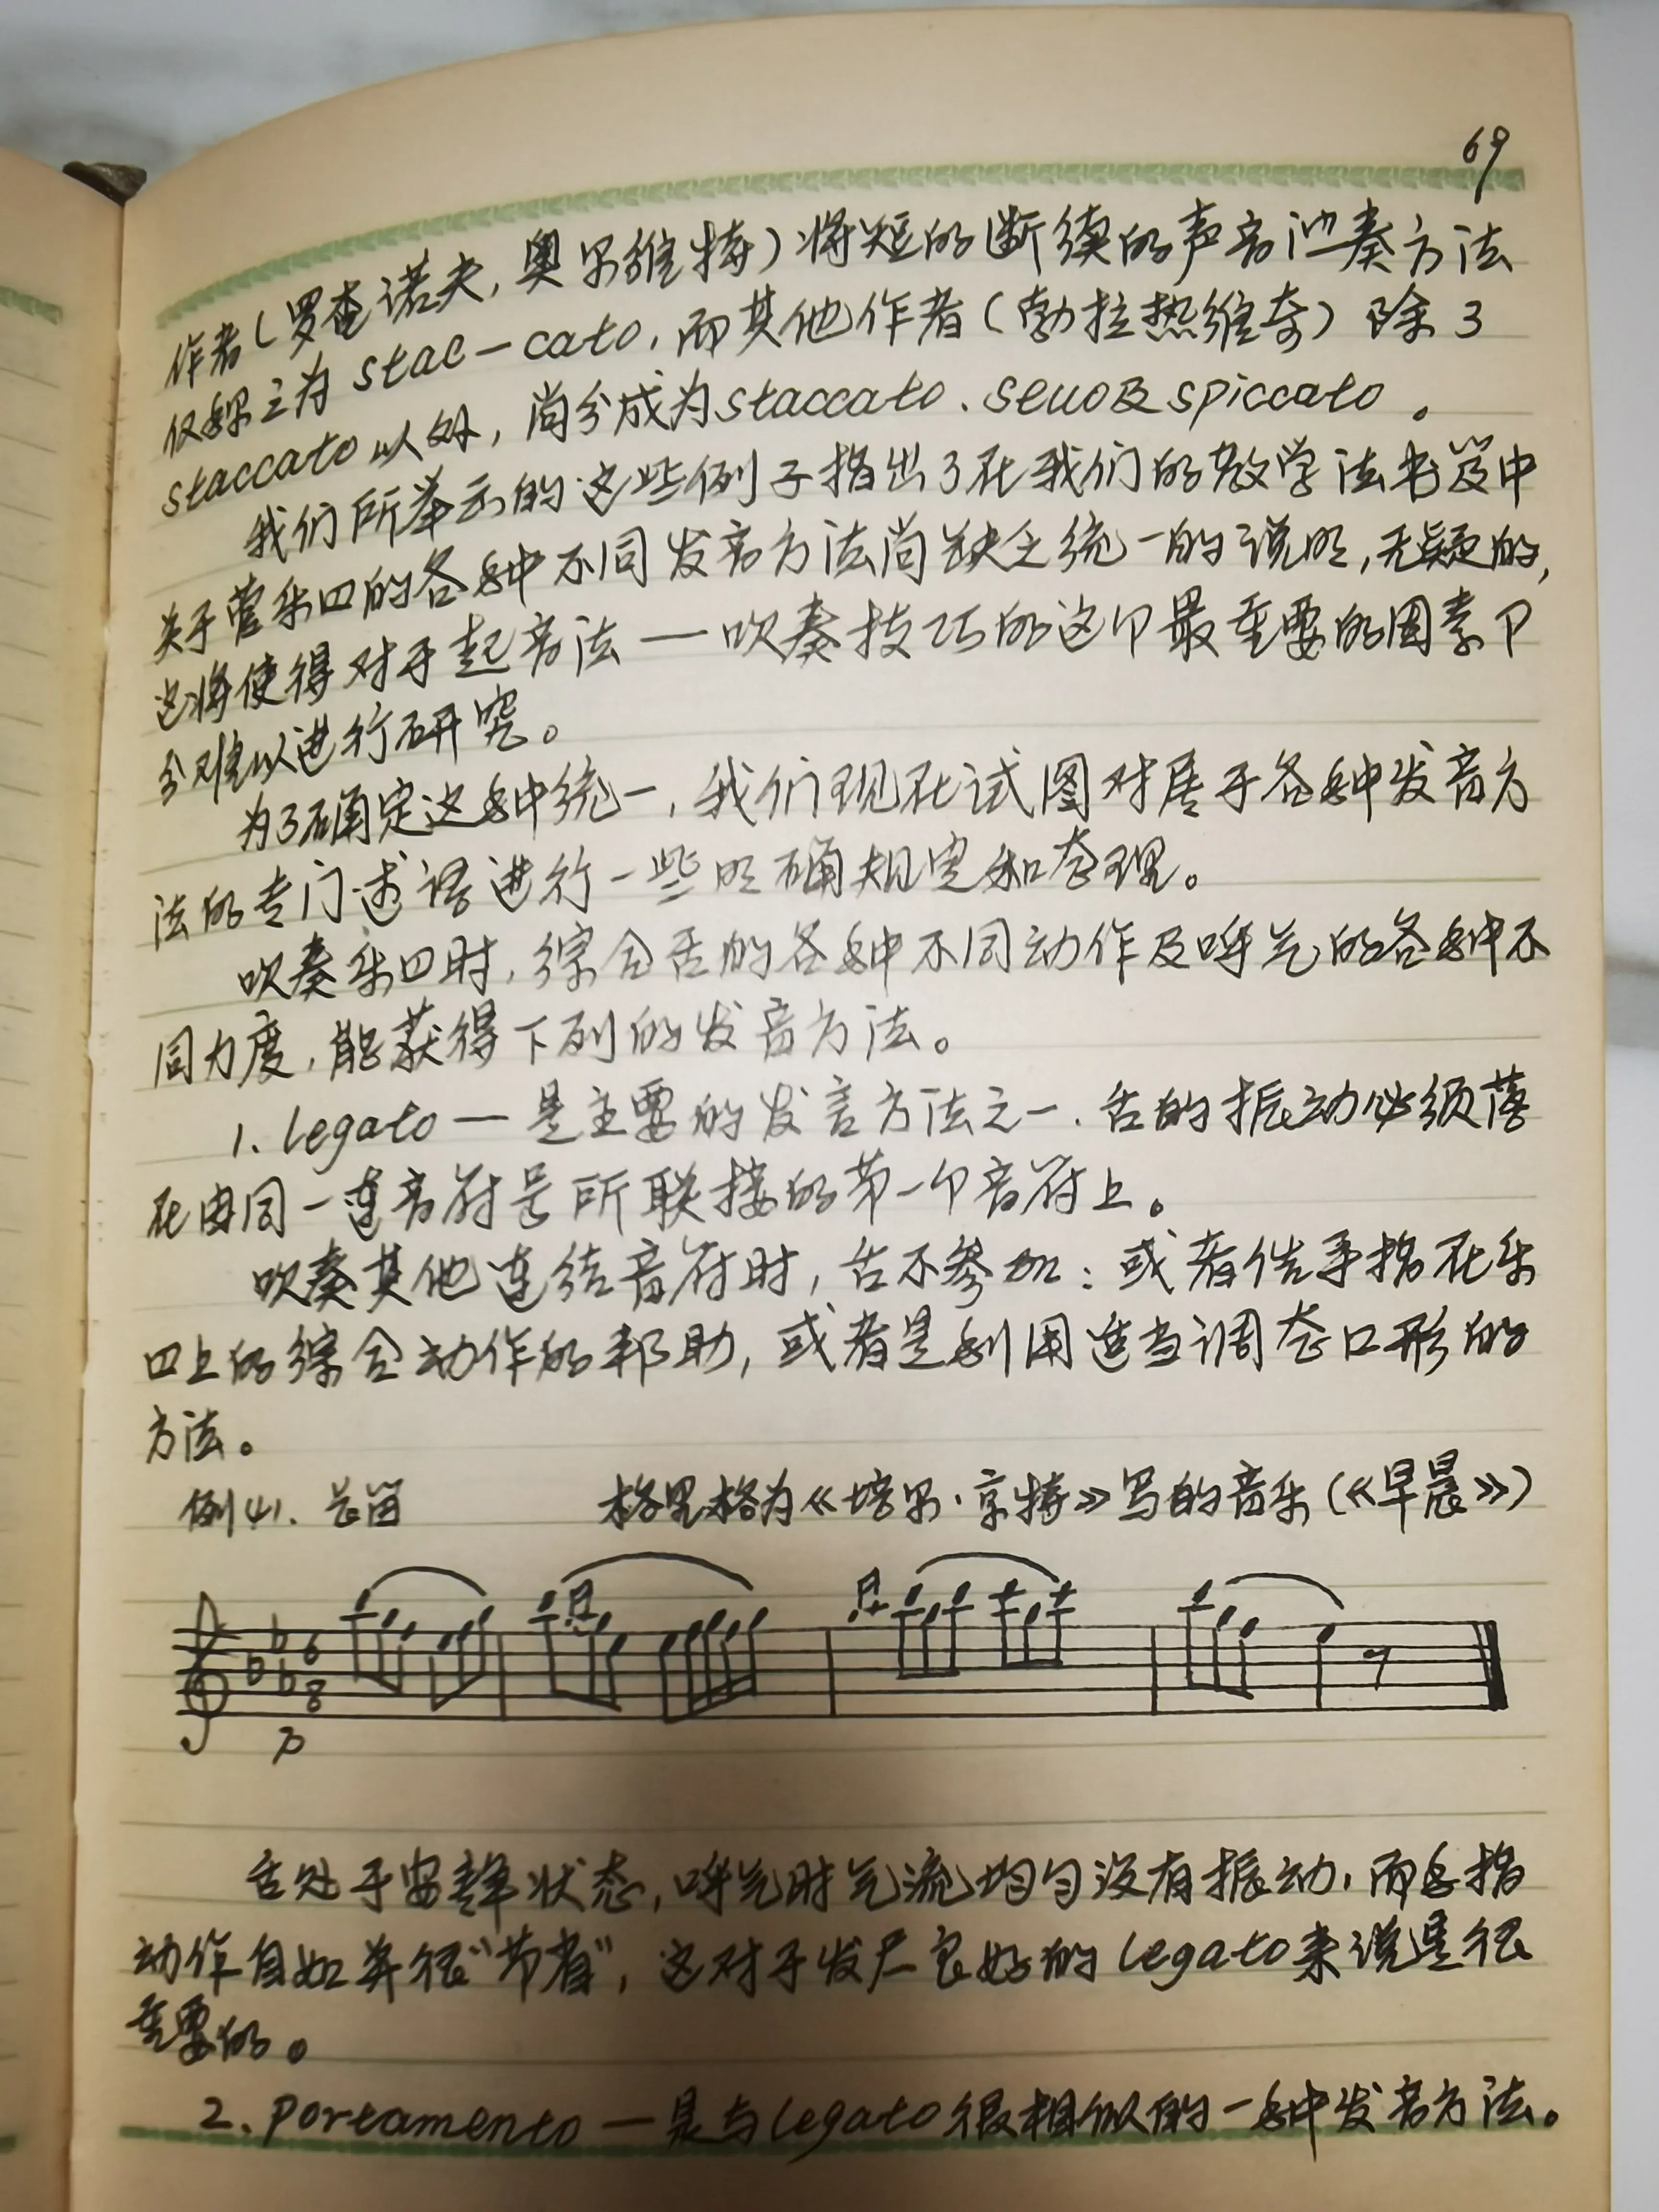 69
作者(罗查诺夫,奥尔维特)将短的断续的声音演奏方法
仅称之为 stac-cato,而其他作者(勃拉热维奇)除了
staccato以外,尚分成为staccato、secco及spiccato。
我们所举示的这些例子指出了在我们的教学法书籍中
关于管乐四的各种不同发音方法尚缺乏统一的说明,无疑的,
这将使得对于起音法—吹奏技巧的这个最重要的因素十
分难以进行研究。
为了确定这种统一,我们现在试图对居于各种发音方
法的专门述语进行一些明确规定和整理。
吹奏乐四时,综合舌的各种不同动作及呼气的各种不
同力度,能获得下列的发音方法。
1. Legato—是主要的发言方法之一、舌的振动必须落
在由同一连音符号所联接的第一个音符上。
吹奏其他连结音符时,舌不参加:或者借手指在乐
四上的综合动作的帮助,或者是利用适当调整口形的
方法。
例41. 长笛 格里格为《培尔·京特》写的音乐(《早晨》)
6
8
p
舌处于安静状态,呼气时气流均匀没有振动,而手指
动作自如并很“节省”,这对于发展良好的Legato来说是很
重要的。
2. Portamento—是与Legato很相似的一种发音方法。